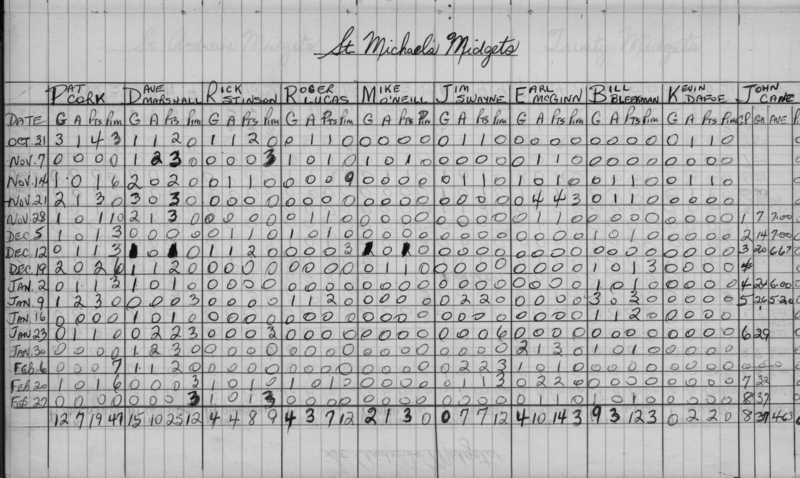 St. Michaels Midgets
PAT CORK DAVE MARSHALL RICK STINSON ROGER LUCAS MIKE O'NEILL JIM SWAYNE EARL McGINN BILL BLEEKMAN KEVIN DAFOE JOHN CANE
DATE G A Pts Pim G A Pts Pim G A Pts Pim G A Pts Pim G A Pts Pim G A Pts Pim G A Pts Pim G A Pts Pim G A Pts Pim GP GA AVE
OCT.31 3 1 4 3 1 1 2 0 1 1 2 0 0 1 1 0 0 0 0 0 0 1 1 0 0 0 0 0 0 0 0 0 0 1 1 0
NOV.7 0 0 0 0 1 2 3 0 0 0 0 3 1 0 1 0 1 0 1 0 0 0 0 0 0 1 1 0 0 0 0 0 0 0 0 0
NOV.14 1 0 1 6 2 0 2 0 0 1 1 0 0 0 0 9 0 0 0 0 0 1 1 0 1 0 1 0 0 1 1 0 0 1 1 0
NOV.21 2 1 3 0 3 0 3 0 0 0 0 0 0 0 0 0 0 0 0 0 0 0 0 0 0 4 4 3 0 1 1 0 0 0 0 0
NOV.28 1 0 1 10 2 1 3 0 0 0 0 0 0 1 1 0 0 0 0 0 0 0 0 0 0 1 1 0 0 0 0 0 0 0 0 0 1 7 7.00
DEC.5 1 0 1 3 0 0 0 0 0 1 1 0 1 0 1 0 0 0 0 0 0 0 0 0 0 0 0 0 1 0 1 0 0 0 0 0 2 14 7.00
DEC.12 0 1 1 3 1 0 1 0 1 1 2 0 0 0 0 3 1 0 1 0 0 0 0 0 0 0 0 0 0 0 0 0 0 0 0 0 3 20 6.67
DEC.19 2 0 2 6 1 1 2 0 0 0 0 0 0 0 0 0 0 1 1 0 0 0 0 0 0 0 0 0 1 0 1 3 0 0 0 0
JAN.2 0 1 1 1 0 1 0 0 0 0 0 0 0 0 0 0 0 0 0 0 0 0 0 0 0 0 0 1 0 1 0 0 0 0 0 4 24 6.00
JAN.9 1 2 3 0 0 0 0 3 0 0 0 0 1 1 2 0 0 0 0 0 0 2 2 0 0 0 0 0 3 0 3 0 0 0 0 0 5 26 5.20
JAN.16 0 0 0 0 1 0 1 0 0 0 0 0 0 0 0 0 0 0 0 0 0 0 0 0 0 0 0 0 1 1 2 0 0 0 0 0
JAN.23 0 1 1 0 0 2 2 3 0 0 0 3 0 0 0 0 0 0 0 0 0 0 0 6 0 0 0 0 0 0 0 0 0 0 0 0 6 29
JAN.30 0 0 0 0 1 2 3 0 0 0 0 0 0 0 0 0 0 0 0 0 0 0 0 0 2 1 3 0 1 0 1 0 0 0 0 0
FEB.6 0 0 0 7 1 1 2 0 0 0 0 0 0 0 0 0 0 0 0 0 0 2 2 3 1 0 1 0 0 0 0 0 0 0 0 0
FEB 20 1 0 1 6 0 0 0 3 1 0 1 0 1 0 1 0 0 0 0 0 0 1 1 3 0 2 2 0 0 0 0 0 0 0 0 0 7 32
FEB 27 0 0 0 0 0 0 0 3 1 0 1 3 0 0 0 0 0 0 0 0 0 0 0 0 0 1 1 0 1 0 1 0 0 0 0 0 8 37
12 7 19 47 15 10 25 12 4 4 8 9 4 3 7 12 2 1 3 0 0 7 7 12 4 10 14 3 9 3 12 3 0 2 2 0 8 37 4.63